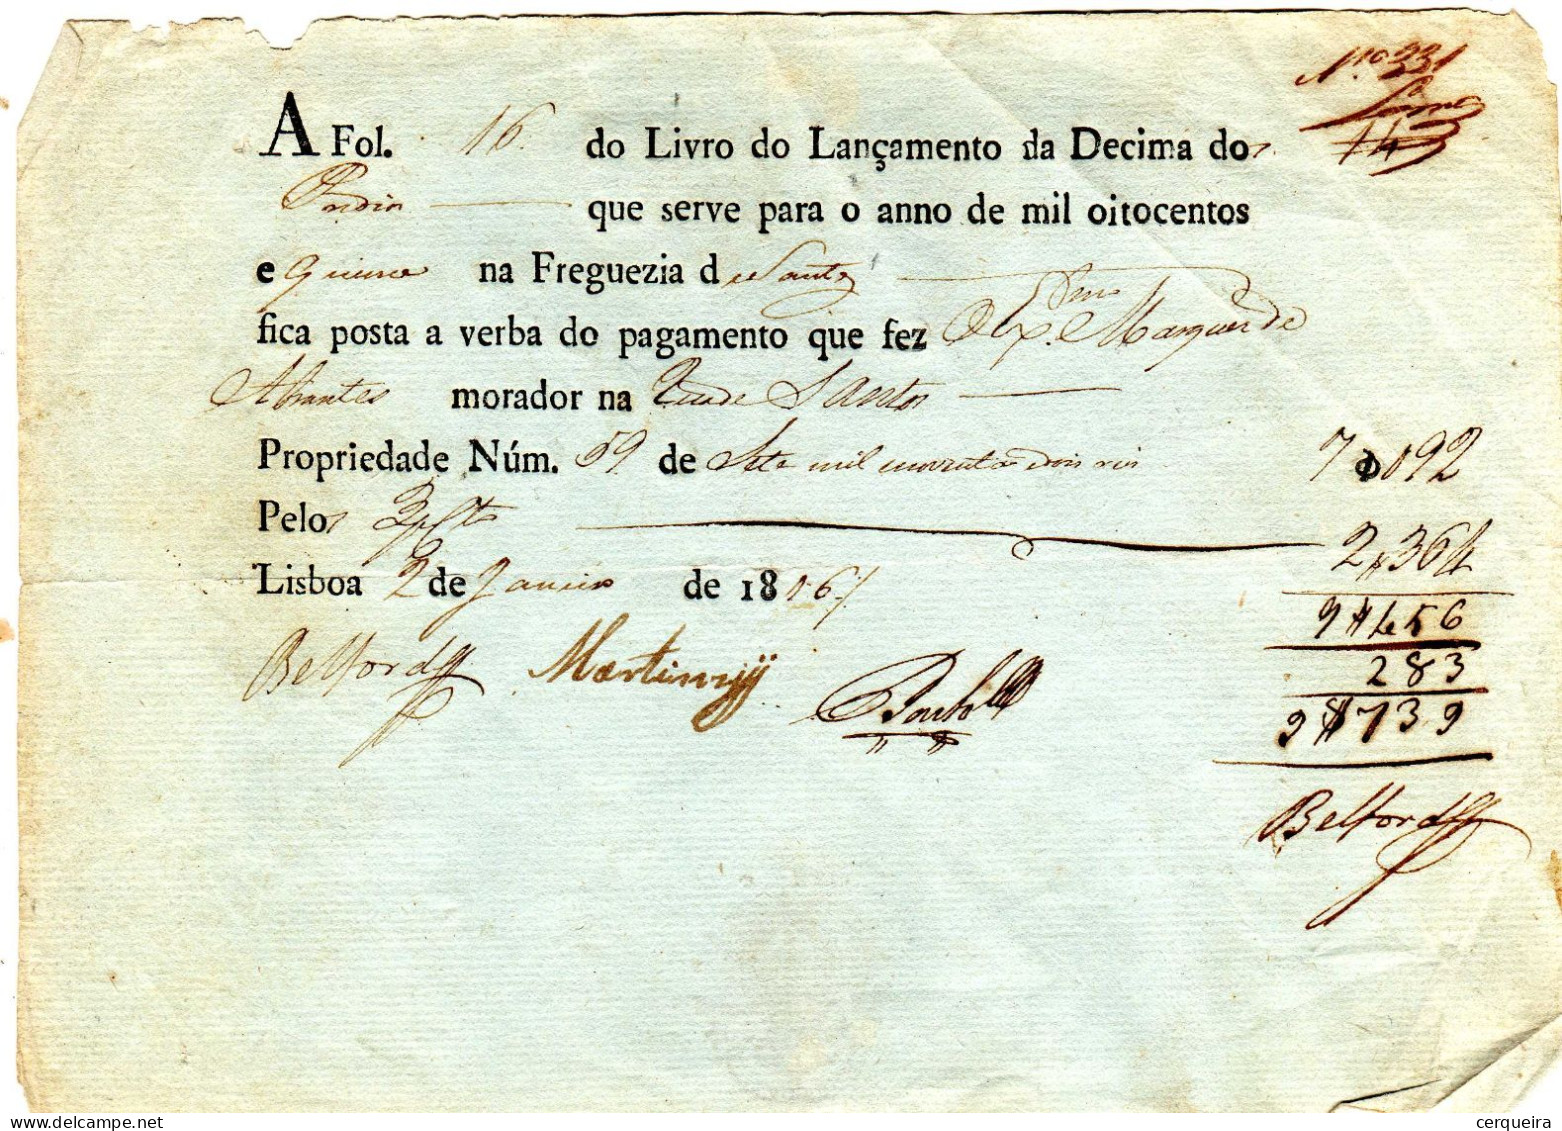 Nº 331
14
A Fol. 16 do Livro do Lançamento da Decima dos
Predios que serve para o anno de mil oitocentos
e quinse na Freguezia de Santos
fica posta a verba do pagamento que fez O Exmo. Marquez de
Abrantes morador na Rua de Santos
Propriedade Núm. 59 de Sete mil noventa e dois reis 7$092
Pelos 3 p Cto 2$364
Lisboa 2 de Janeiro de 1816
9$456
Belford Martins
283
9$739
Belford
cerqueira